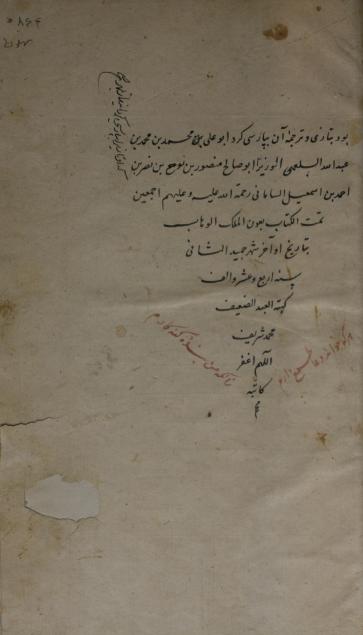 بود بتازی و ترجمهٔ آن بپارسی کرد ابو علی محمد بن محمد بن
عبدالله البلعمی الوزیر ابو صالح منصور بن نوح بن نصر بن
احمد بن اسمعیل السامانی رحمة الله علیه و علیهم اجمعین
تمت الکتاب بعون الملک الوهاب
بتاریخ اواخر شهر جمید الثانی
سنه اربع و عشر و الف
کتبه العبد الضعیف
محمد شریف
اللهم اغفر
کاتبه
هر که خواند دعا طمع دارم
زانکه من بنده گنه کارم